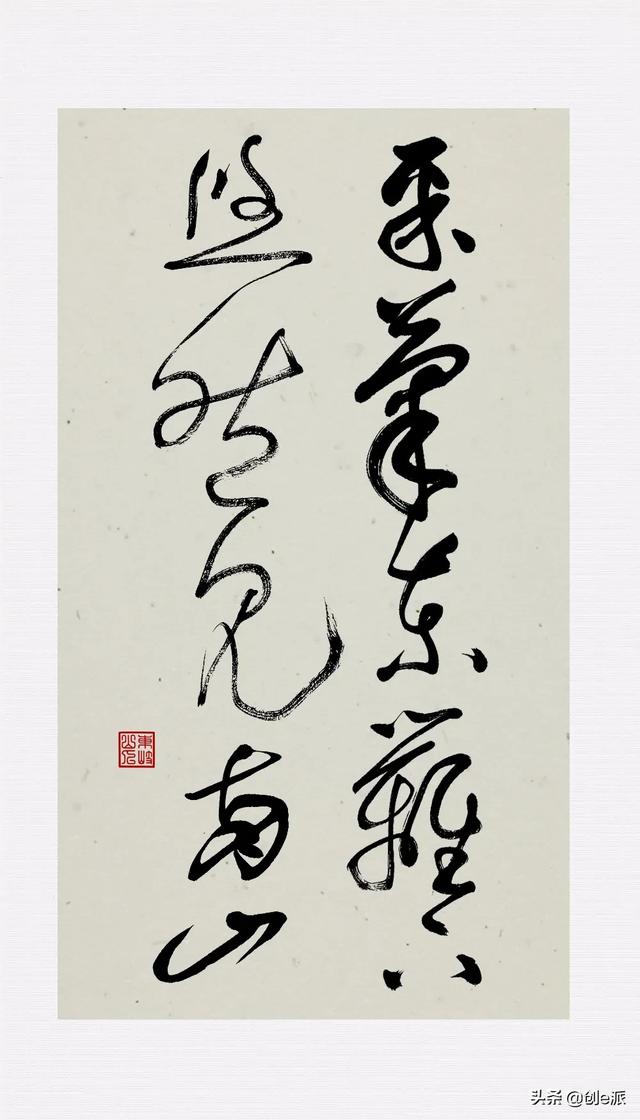 采菊东篱下
悠然见南山
头条 @创e派